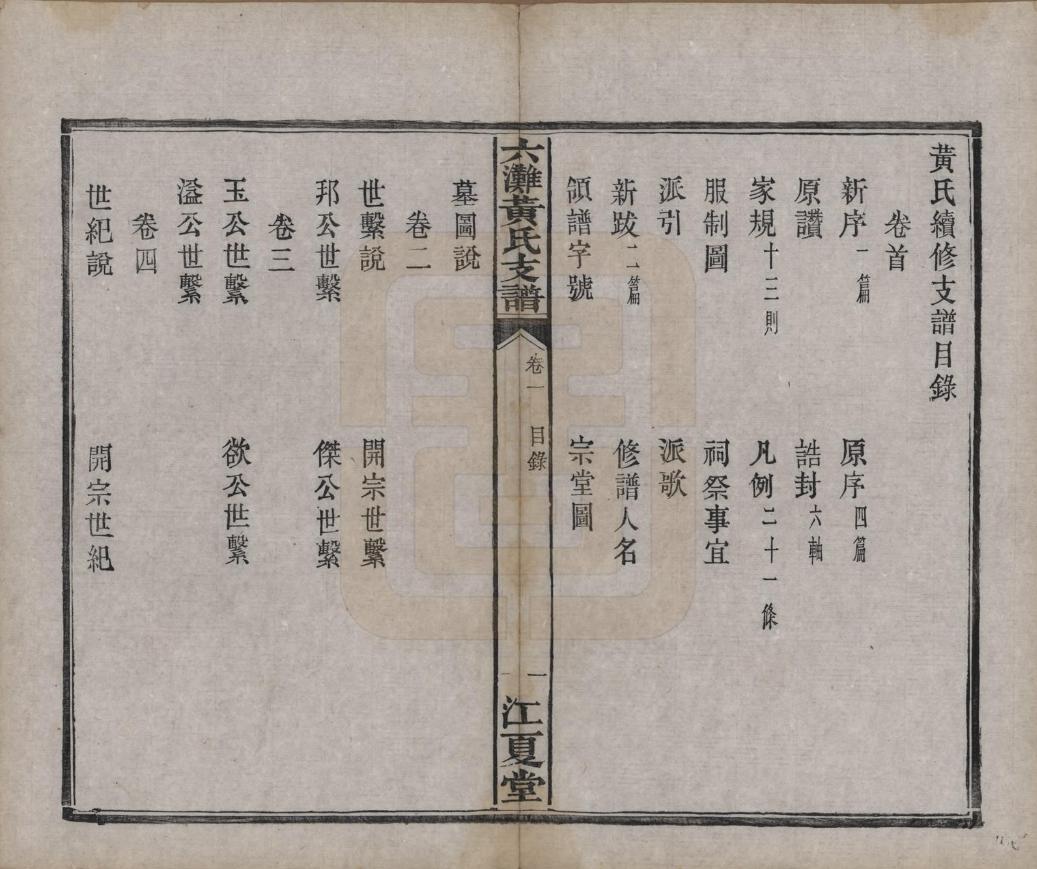 黃氏續修支譜目錄
卷首
新序一篇 原序四篇
原讚 誥封六軸
家規十三則 凡例二十一條
服制圖 祠祭事宜
派引 派歌
新跋二篇 修譜人名
領譜字號 宗堂圖
六灘黃氏支譜 卷一 目錄 一 江夏堂
墓圖說
卷二
世繫說 開宗世繫
邦公世繫 傑公世繫
卷三
玉公世繫 欲公世繫
溢公世繫
卷四
世紀說 開宗世紀